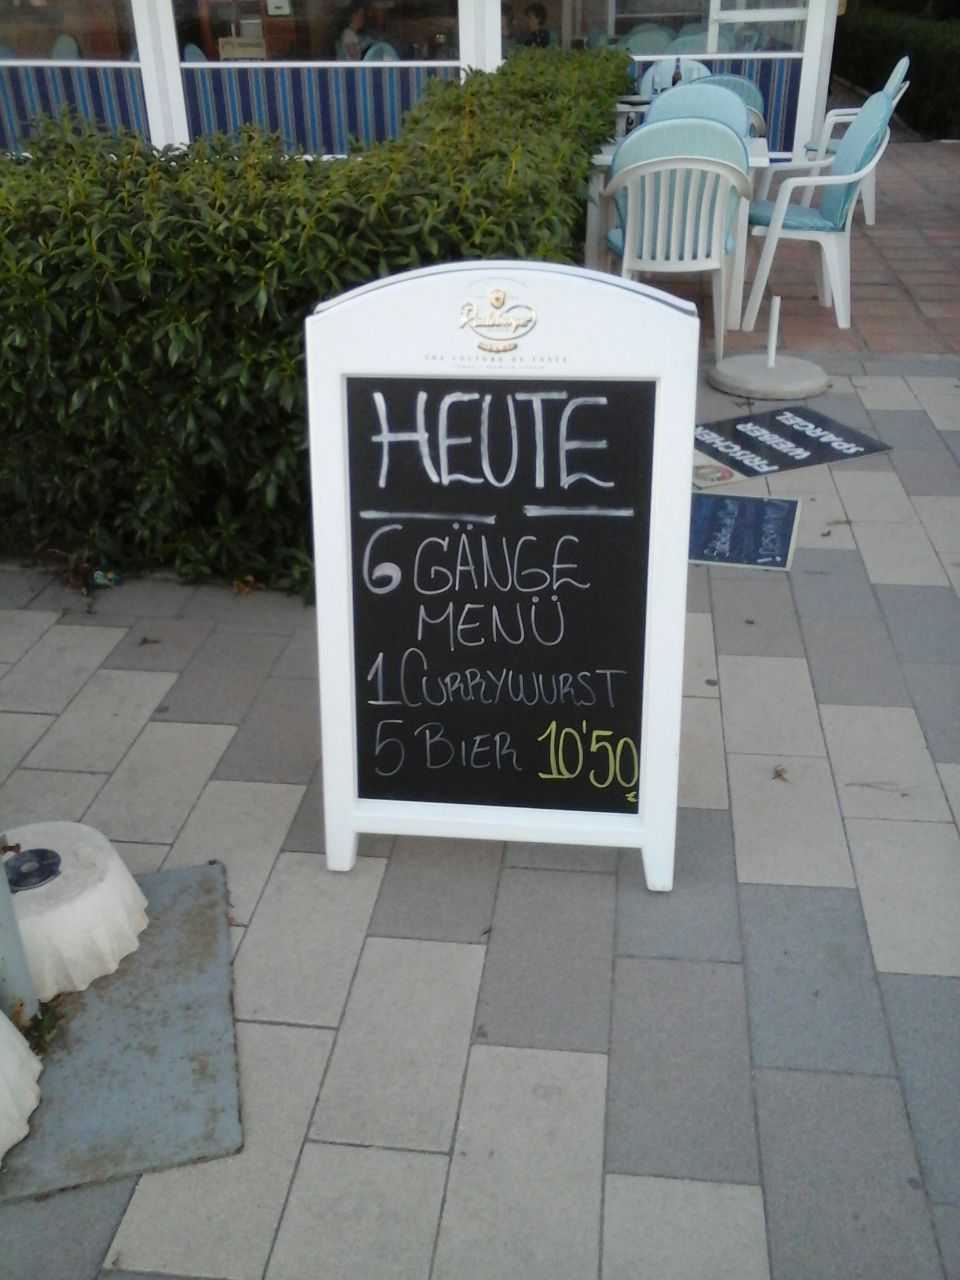 Radeberger
THE CULTURE OF TASTE.
HEUTE
6 GÄNGE
MENÜ
1 CURRYWURST
5 BIER 10'50
€
FRISCHER
WEIßER
SPARGEL